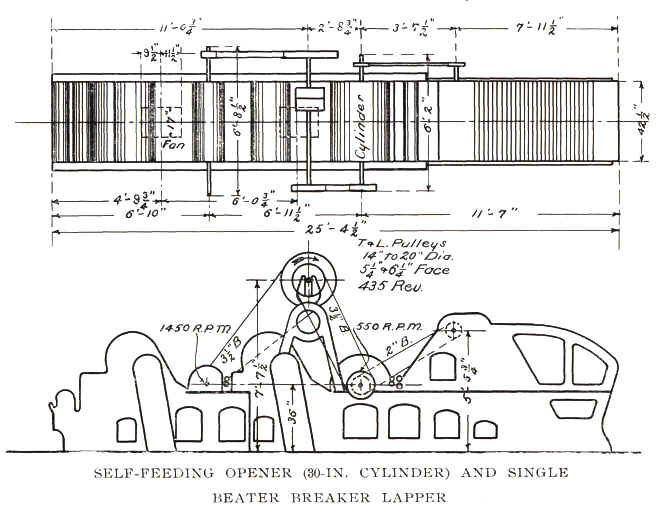 11'-0 3/4" 2'-8 3/4" 3'-7 1/2" 7'-11 1/2"
9 1/2" 11 1/2"
17"
Fan
6'-8 1/2"
Cylinder
6'-2"
42 1/2"
4'-9 3/4" 6'-0 3/4"
6'-10" 6'-11 1/2" 11'-7"
25'-4 1/2"
T & L. Pulleys
14" to 20" Dia.
5 1/4" & 6 1/4" Face
435 Rev.
1450 R.P.M.
3 1/2" B.
3 1/2" B.
550 R.P.M.
2" B.
7'-7 1/2"
36"
SELF-FEEDING OPENER (30-IN. CYLINDER) AND SINGLE
BEATER BREAKER LAPPER